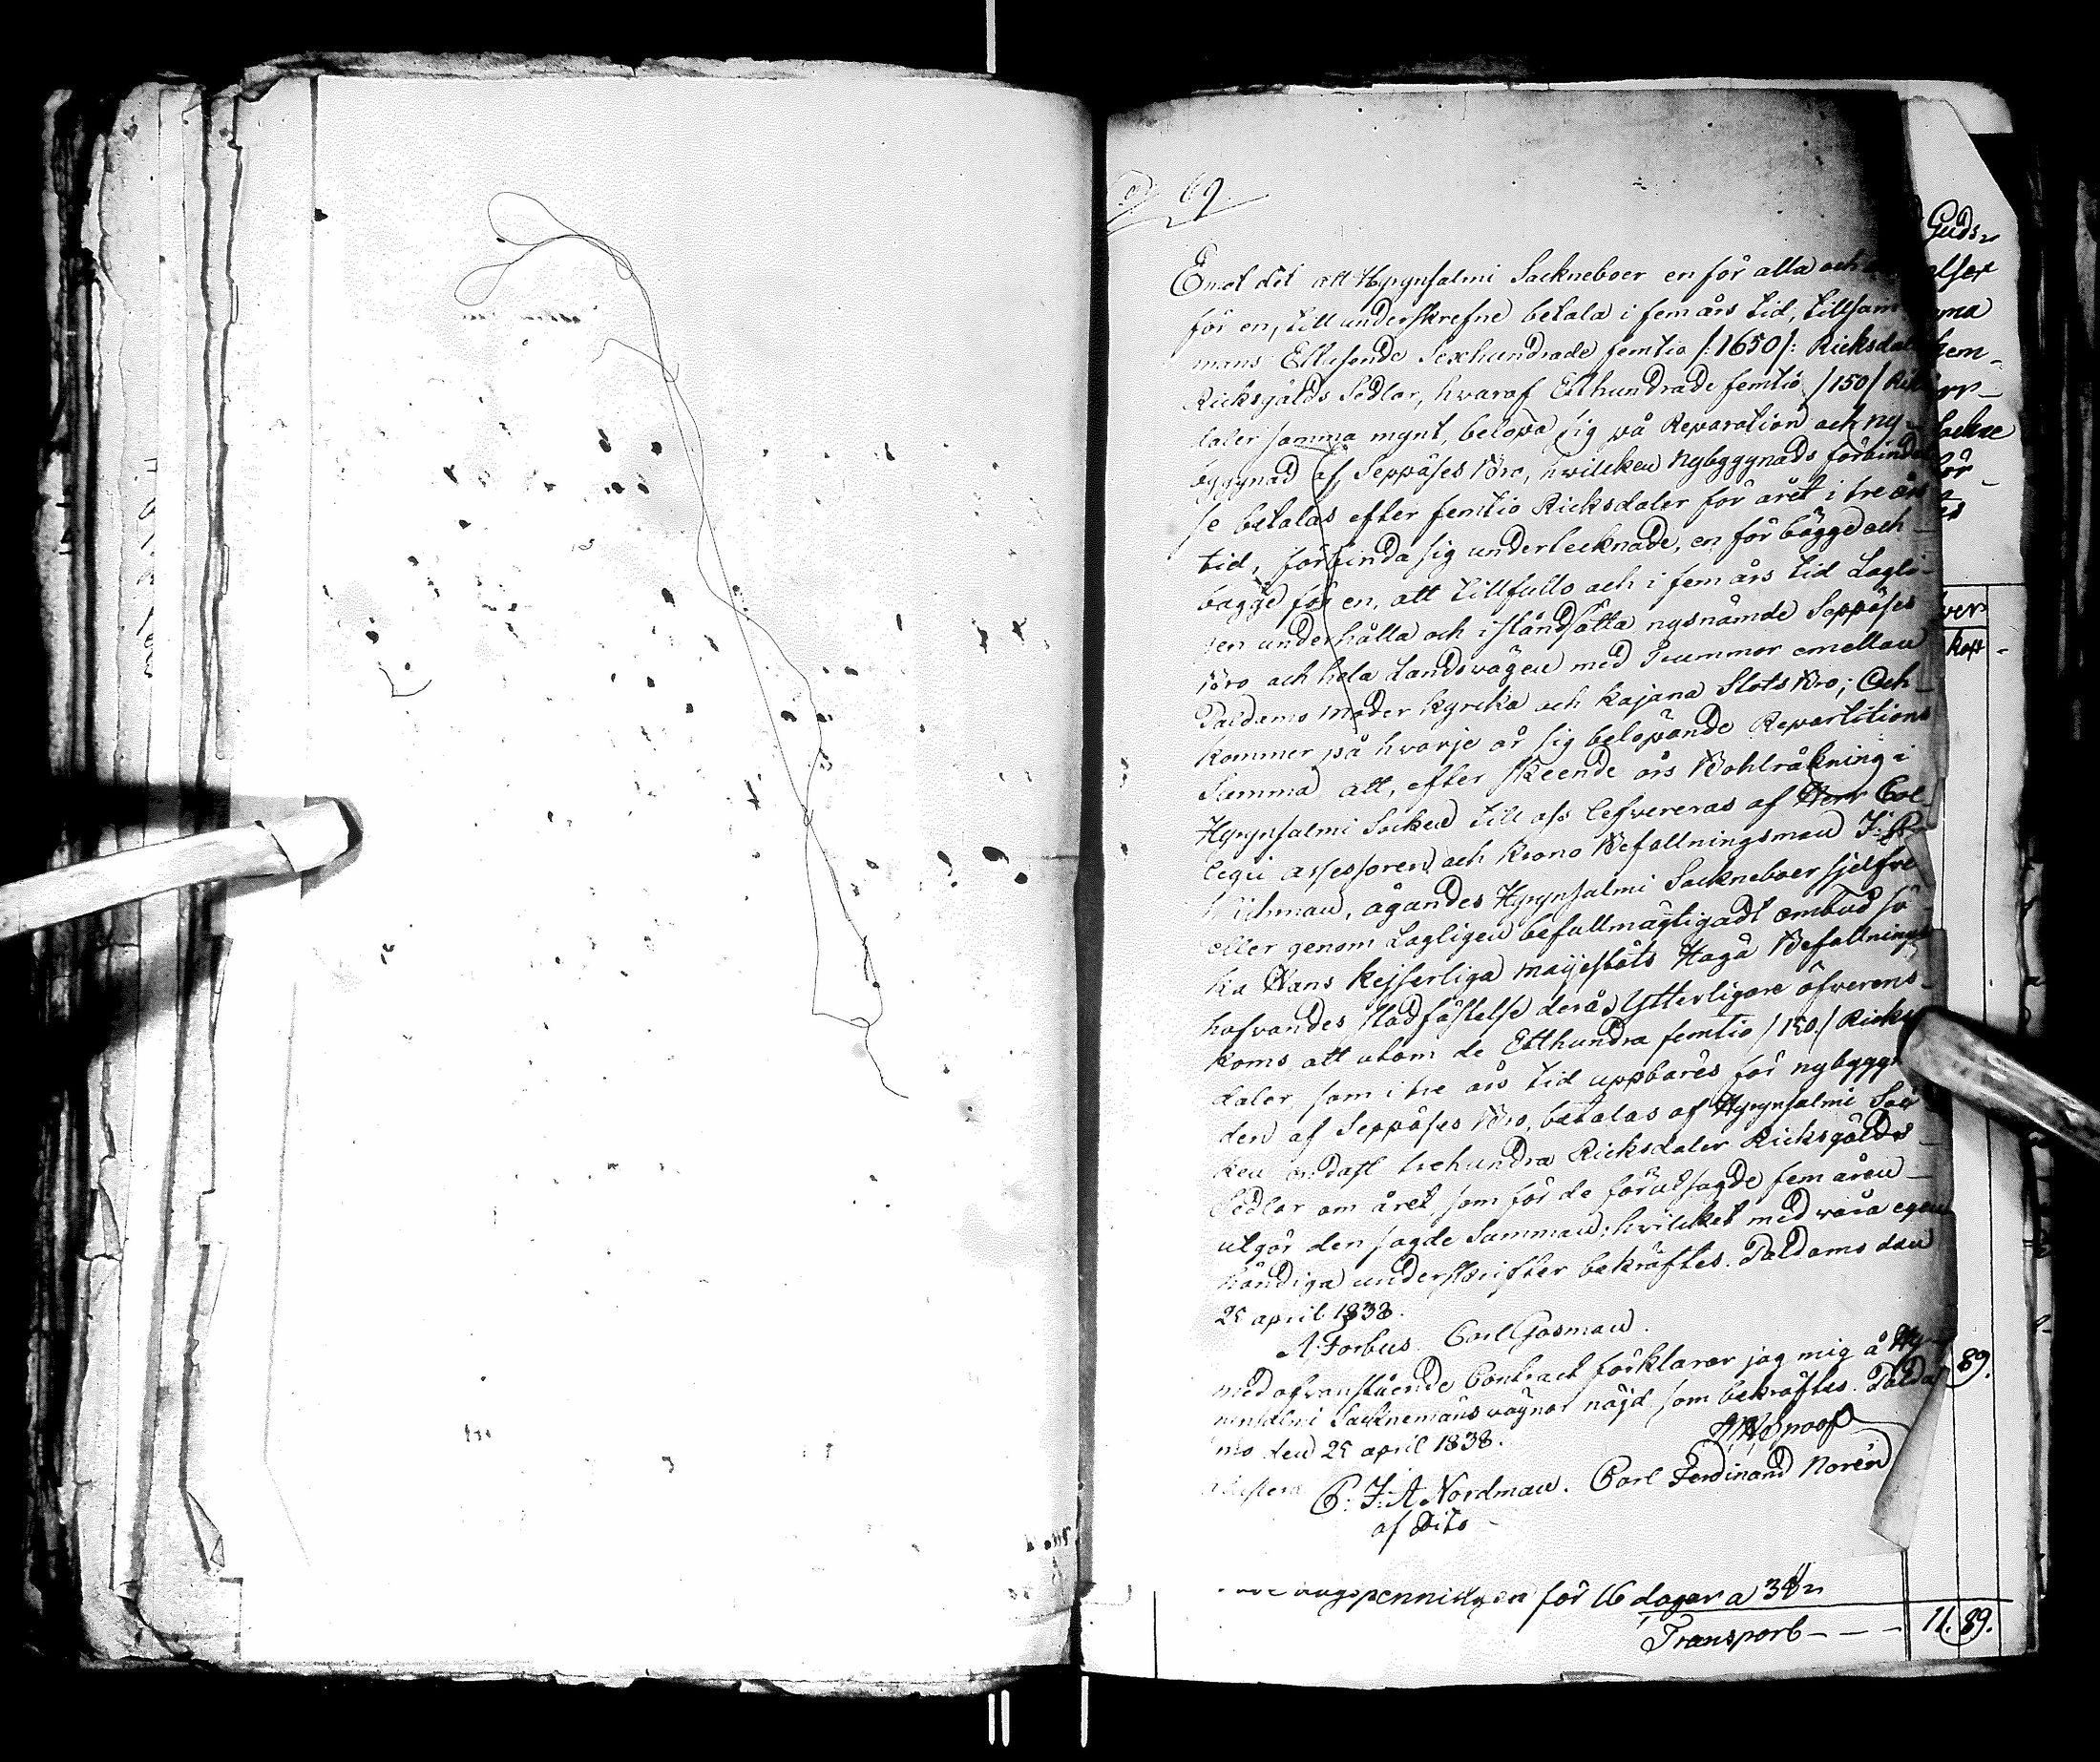 69.
Emot det att Hyrynsalmi Sockneboer en för alla och
för en, till underskrefne betala i fem års tid, tillsam-
mans Ettusende Sexhundrade femtio /:1650/: Ricksdaler
Ricksgälds Sedlar, hvaraf Etthundrade femtio /150/ Riks
daler samma mynt, belöpa sig på Reparation och ny-
byggnad af Seppäses Bro, hvilcken Nybyggnads förbindel
se betalas efter femtio Ricksdaler för året i tre års
tid, förbinda sig undertecknade, en för bägge och
bägge för en, att tillfullo och i fem års tid Lagli-
gen underhålla och iståndsätta nysnämde Seppäses
Bro och hela Landsvägen med Trummor emellan
Paldamo Moder kyrcka och Kajana Slots Bro; Och
kommer på hvarje år sig belöpande Repartitions
Summa att, efter skeende års Bohlräkning i
Hyrynsalmi Socken till oss lefvereras af Herr Col-
legii Assessoren och Krono Befallningsman J: R
Wichman, ägandes Hyrynsalmi Sockneboer sjelfve
eller genom Lagligen befullmägtigadt ombud sö-
ka Hans Kejserliga Maijestäts Höga Befallnings
hafvandes stadfästelse derå. Ytterligare öfverens-
koms att utom de Etthundra femtio /150/ Ricks
daler, som i tre års tid uppbäres för nybyggna
den af Seppäses Bro, betalas af Hyrynsalmi Soc
ken endast trehundra Ricksdaler Ricksgälds
Sedlar om året, som för de förutsagde fem åren
utgör den sagde Summan; hvilcket med våra egen
händiga underskrifter bekräftes. Paldamo den
25 april 1838.
A. Forbus. Carl Gasman.
Med ofvanstående Contract förklarar jag mig å Hy-
rynsalmi Socknemäns vägnar nöjd som bekräftes. Palda
mo den 25 april 1838.
Spoof
C: J: A Nordman. Carl Ferdinand Norén
af Dito
vägspenningen för 16 dagar a 38
Transport - - - 11. 89.
Guds
elser
ma
hem-
opp-
Sockne
för
ver
kop
89.